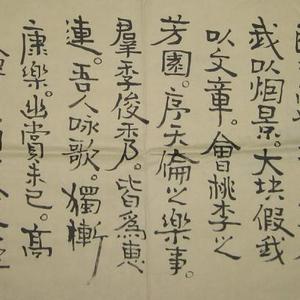 我以烟景。大块假我
以文章。會桃李之
芳園。序天倫之樂事。
羣季俊秀。皆爲惠
連。吾人咏歌。獨慚
康樂。幽賞未已。高